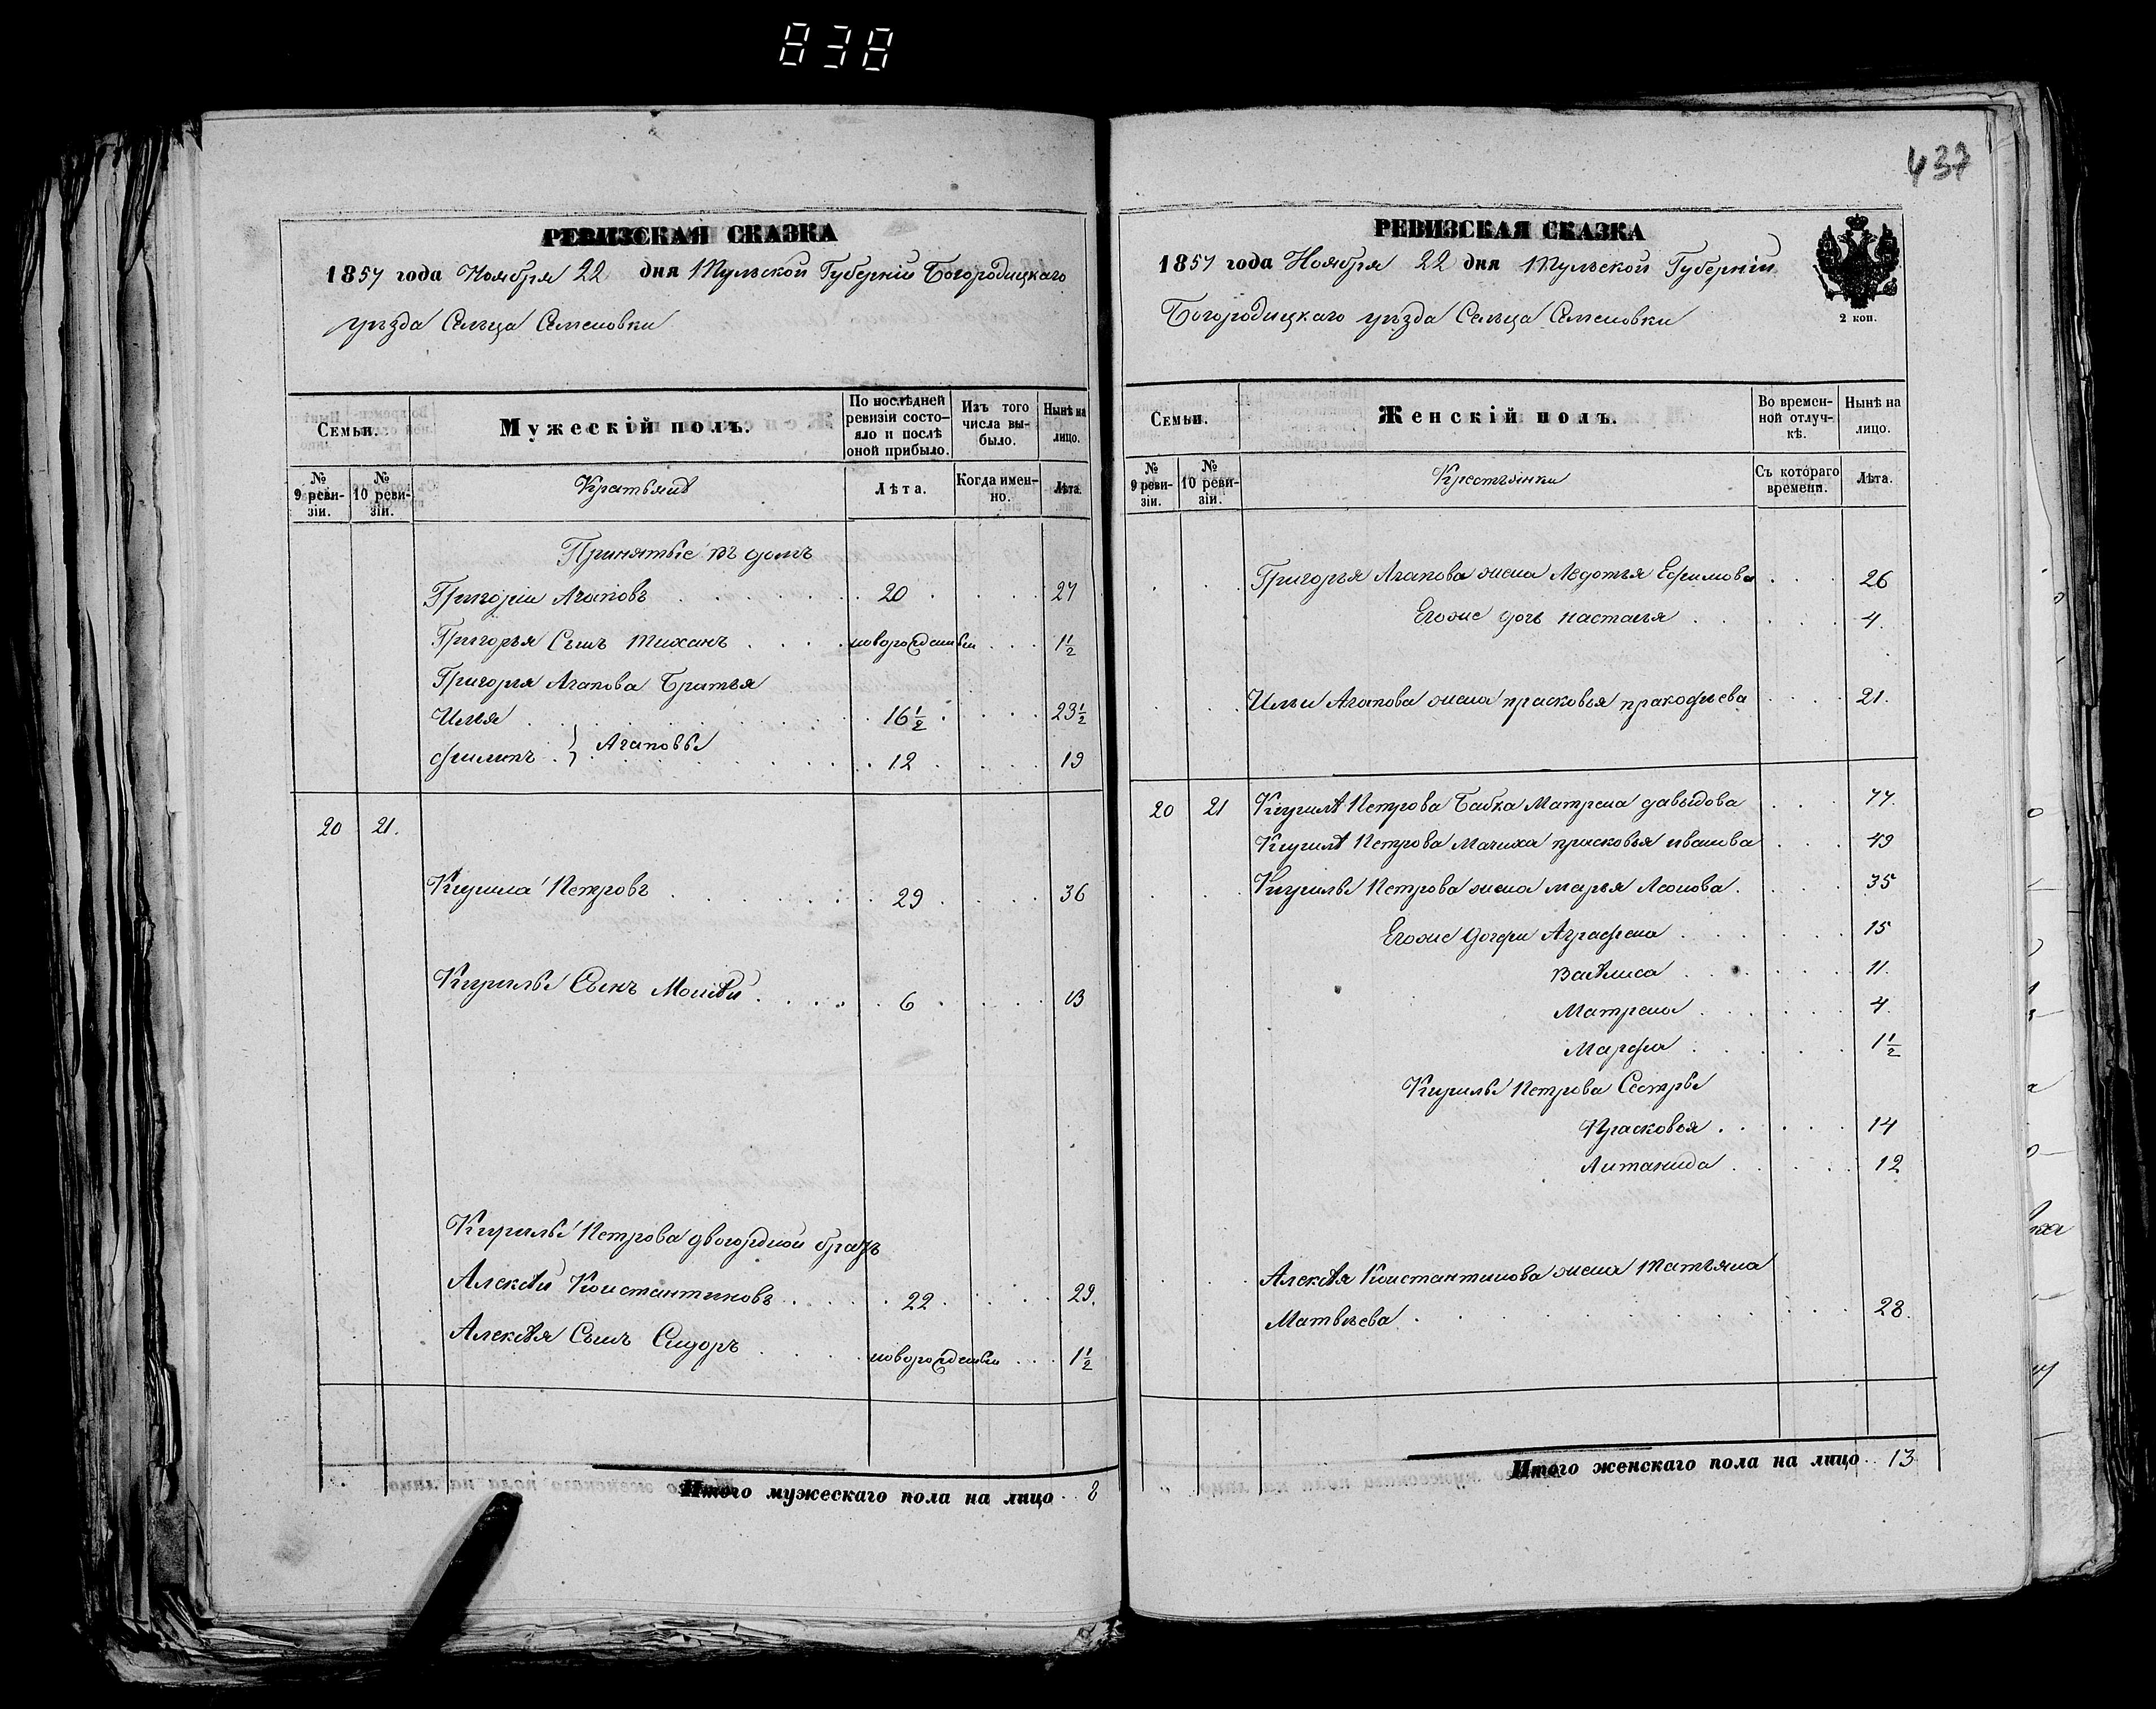 838
РЕВИЗСКАЯ СКАЗКА
1857 года Ноября 22 дня Тульской Губерніи Богородицкаго
уѣзда Сельца Семеновки
Семьи.
Мужескій полъ.
По послѣдней ревизіи состояло и послѣ оной прибыло.
Изъ того числа выбыло.
Нынѣ на лицо.
№ 9 ревизіи.
№ 10 ревизіи.
Лѣта.
Когда именно.
Лѣта.
Принятые въ домъ
Григорій Агаповъ 20 27
Григорья Сынъ Тиханъ новорожденный 1 1/2
Григорья Агапова Братья
Илья 16 1/2 23 1/2
филипъ } Агаповы 12 19
20 21.
Кирила Петровъ 29 36
Кирилы Сынъ Моисѣй 6 13
Кирилы Петрова двоюрдной братъ
Алексѣй Константиновъ 22 29.
Алексѣя Сынъ Сидоръ новорожденный 1 1/2
Итого мужескаго пола на лицо 8
437
РЕВИЗСКАЯ СКАЗКА
1857 года Ноября 22 дня Тульской Губерніи
Богородицкаго уѣзда Сельца Семеновки
2 коп.
Семьи.
Женскій полъ.
Во временной отлучкѣ.
Нынѣ на лицо.
№ 9 ревизіи.
№ 10 ревизіи.
Крестьянки
Съ котораго времени.
Лѣта.
Григорья Агапова жена Авдотья Ефимова 26
Егоже дочь настасья 4.
Ильи Агапова жена прасковья пракофьева 21.
20 21 Кирилы Петрова Бабка Матрена давыдова 77.
Кирилы Петрова Мачиха прасковья иванова 49
Кирилы Петрова жена марья Леонова. 35
Егоже дочери Аграфена 15
Василиса 11.
Матрена 4.
Марфа 1 1/2
Кирилы Петрова Сестры
Прасковья 14
Антанида 12
Алексѣя Константинова жена Татьяна
Матвѣева 28.
Итого женскаго пола на лицо 13